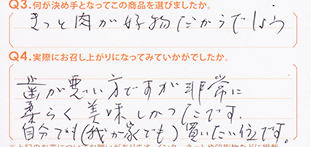 Q3.何が決め手となってこの商品を選びましたか。
きっと肉が好物だからでしょう
Q4.実際にお召し上がりになってみていかがでしたか。
歯が悪い方ですが非常に
柔らく美味しかつたです。
自分でも(我が家でも)買いたい位です。